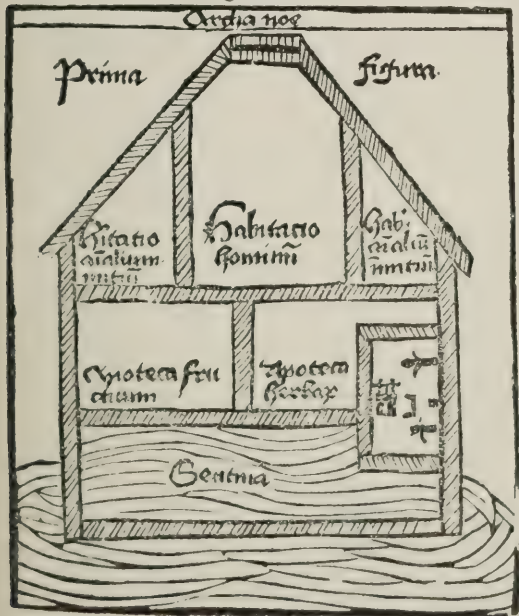 Archa noe
Prima figura.
Hitatio
aīalium
mitiū
Habitacio
hominū
Hab'
aīaliū
īmitiū
Apoteca fru
ctuum
Apoteca
herbaꝝ
Sentina